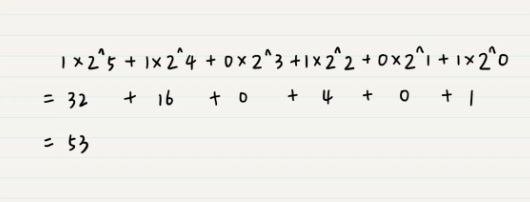 1×2^5 + 1×2^4 + 0×2^3 +1×2^2 + 0×2^1 + 1×2^0
= 32 + 16 + 0 + 4 + 0 + 1
= 53